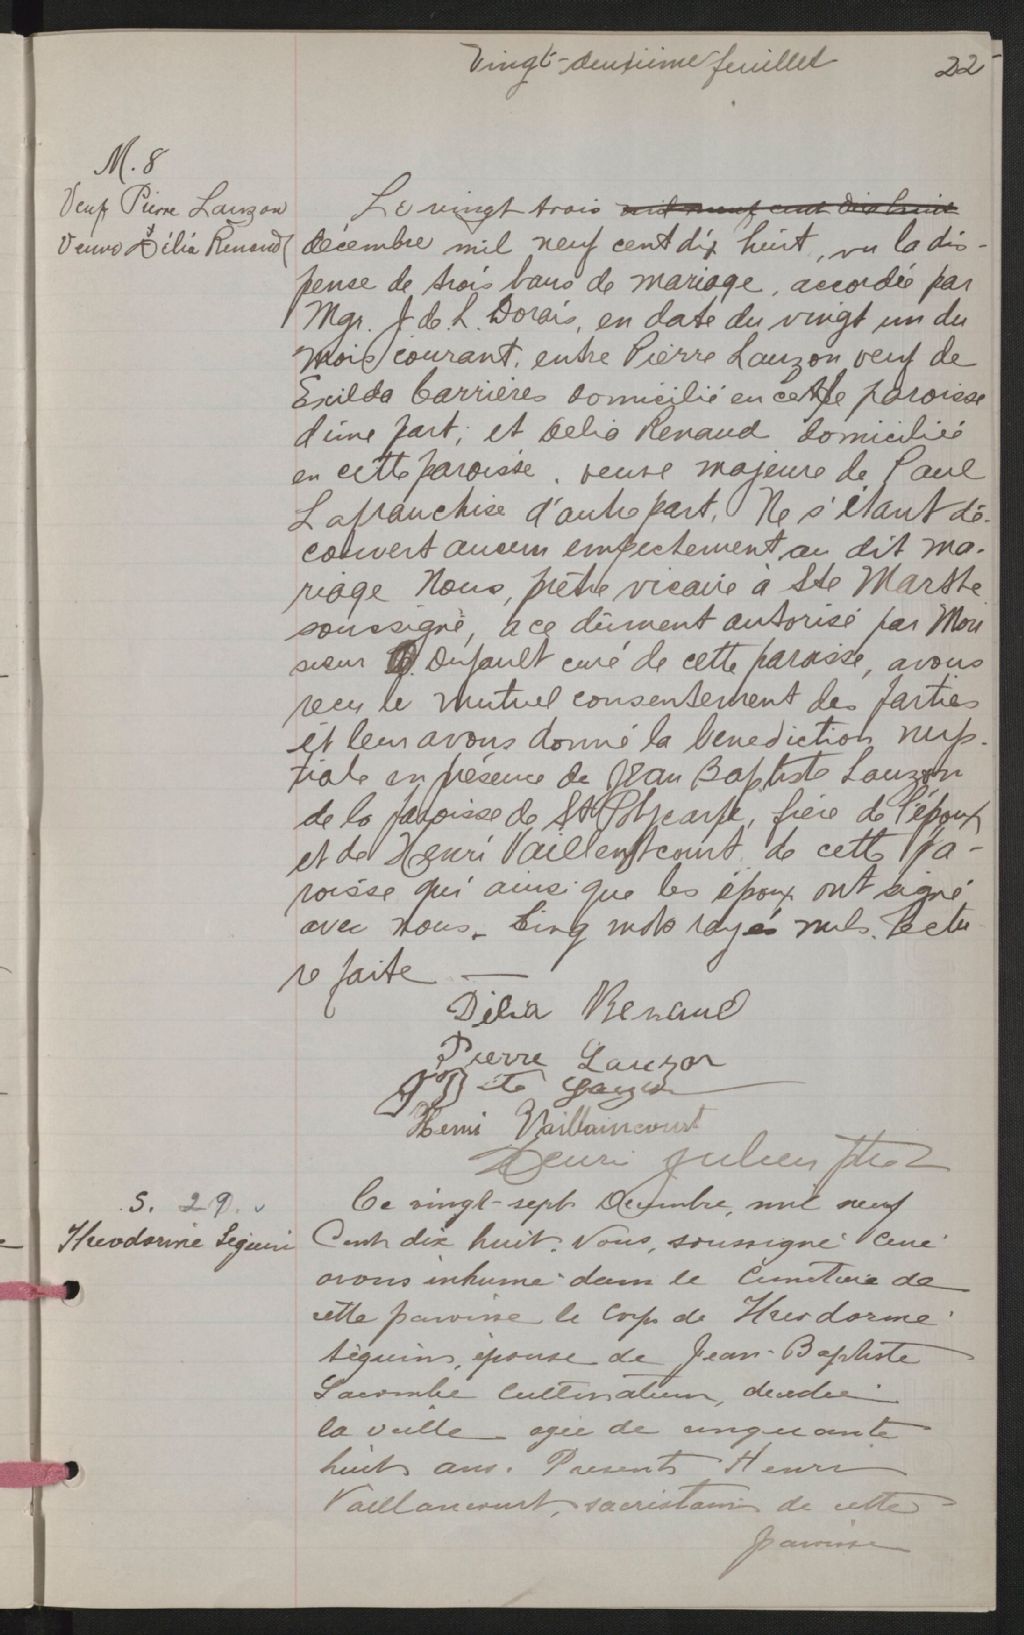 Vingt-deuxième feuillet 22
M. 8
Veuf Pierre Lauzon
Veuve Délia Renaud
Le vingt trois mil neuf cent dix huit
décembre mil neuf cent dix huit, vu la dis-
pense de trois bans de mariage, accordée par
Mgr. J de L. Dorais, en date du vingt un du
mois courant, entre Pierre Lauzon veuf de
Exilda Carrières domicilié en cette paroisse
d'une part; et Delia Renaud domiciliée
en cette paroisse, veuve majeure de Paul
Lafranchise d'autre part. Ne s'étant dé-
couvert aucun empêchement au dit ma-
riage Nous, prêtre vicaire à Ste Marthe
soussigné, a ce dûment autorisé par Mon
sieur Dufault curé de cette paroisse, avons
recu le mutuel consentement des parties
et leur avons donné la bénédiction nup-
tiale en présence de Jean Baptiste Lauzon
de la paroisse de St Polycarpe, frère de l'époux
et de Henri Vaillentcourt de cette pa-
roisse qui ainsi que les époux ont signé
avec nous. Cinq mots rayés nuls. Lectu
re faite
Délia Renaud
Pierre Lauzon
J Bte Lauzon
Henri Vaillaincourt
Henri Julien ptre
S. 29.
Théodorine Séguin
Ce vingt-sept Décembre, mil neuf
Cent dix huit. Nous, soussigné Curé
avons inhumé dans le Cimetière de
cette paroisse le Corps de Théodorine
Séguin, épouse de Jean-Baptiste
Lacombe Cultivateur, décédée
la veille agée de cinquante
huit ans. Présents Henri
Vaillancourt, sacristain de cette
paroisse